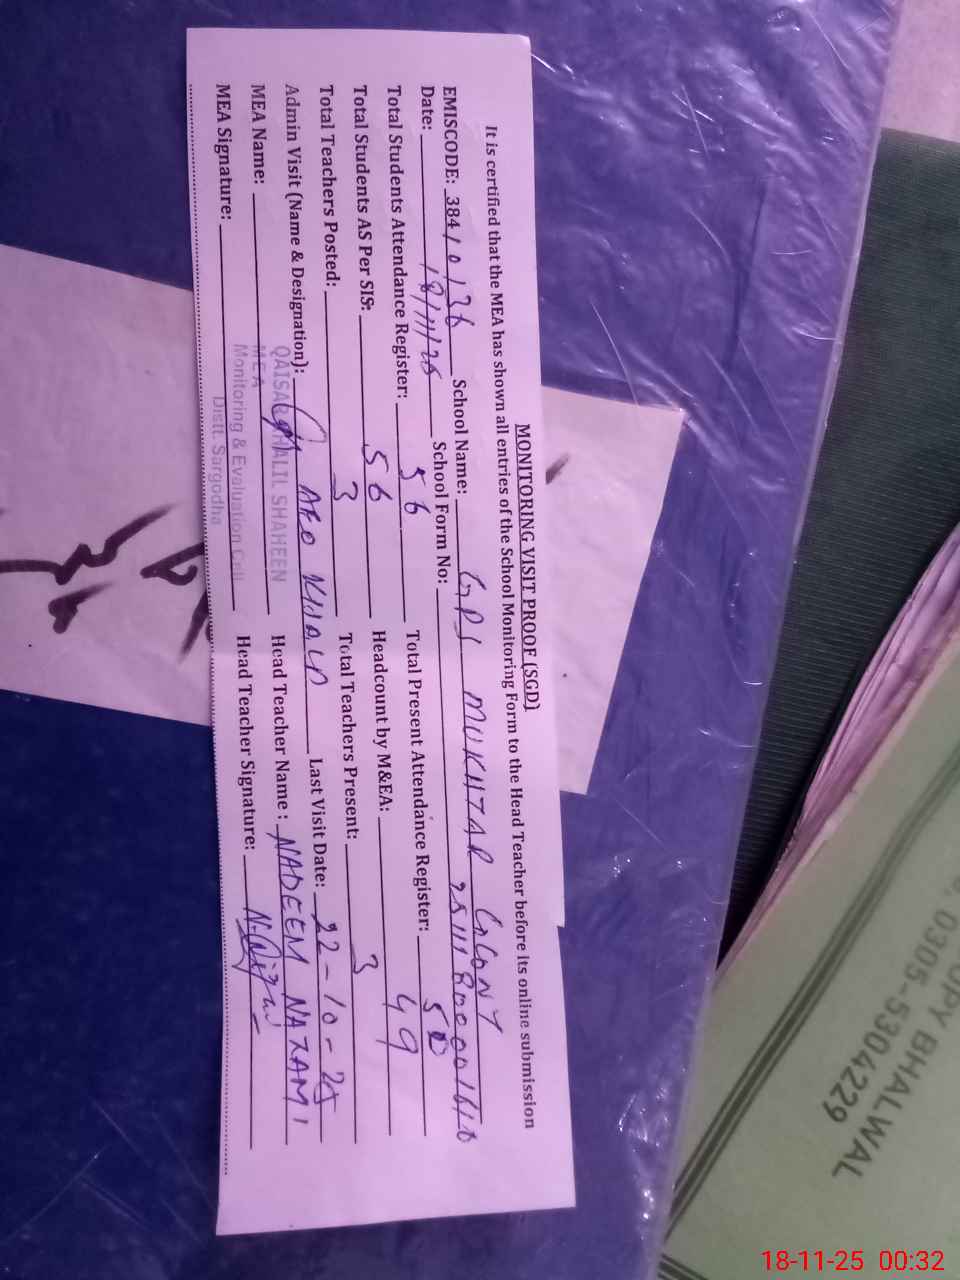 MONITORING VISIT PROOF (SGD)
It is certified that the MEA has shown all entries of the School Monitoring Form to the Head Teacher before its online submission
EMISCODE: 38410136 School Name: GPS MUKHTAR COLONY
Date: 18/11/25 School Form No:
Total Students Attendance Register: 56 Total Present Attendance Register: 50
Total Students AS Per SIS: 56 Headcount by M&EA: 49
Total Teachers Posted: 3 Total Teachers Present: 3
Admin Visit (Name & Designation): AEO Last Visit Date: 22-10-25
MEA Name: Head Teacher Name: NADEEM NAZAMI
MEA Signature: Head Teacher Signature:
QAISAR KHALIL SHAHEEN
MEA
Monitoring & Evaluation Cell
Distt. Sargodha
OPY BHALWAL
0305-5304229
18-11-25 00:32